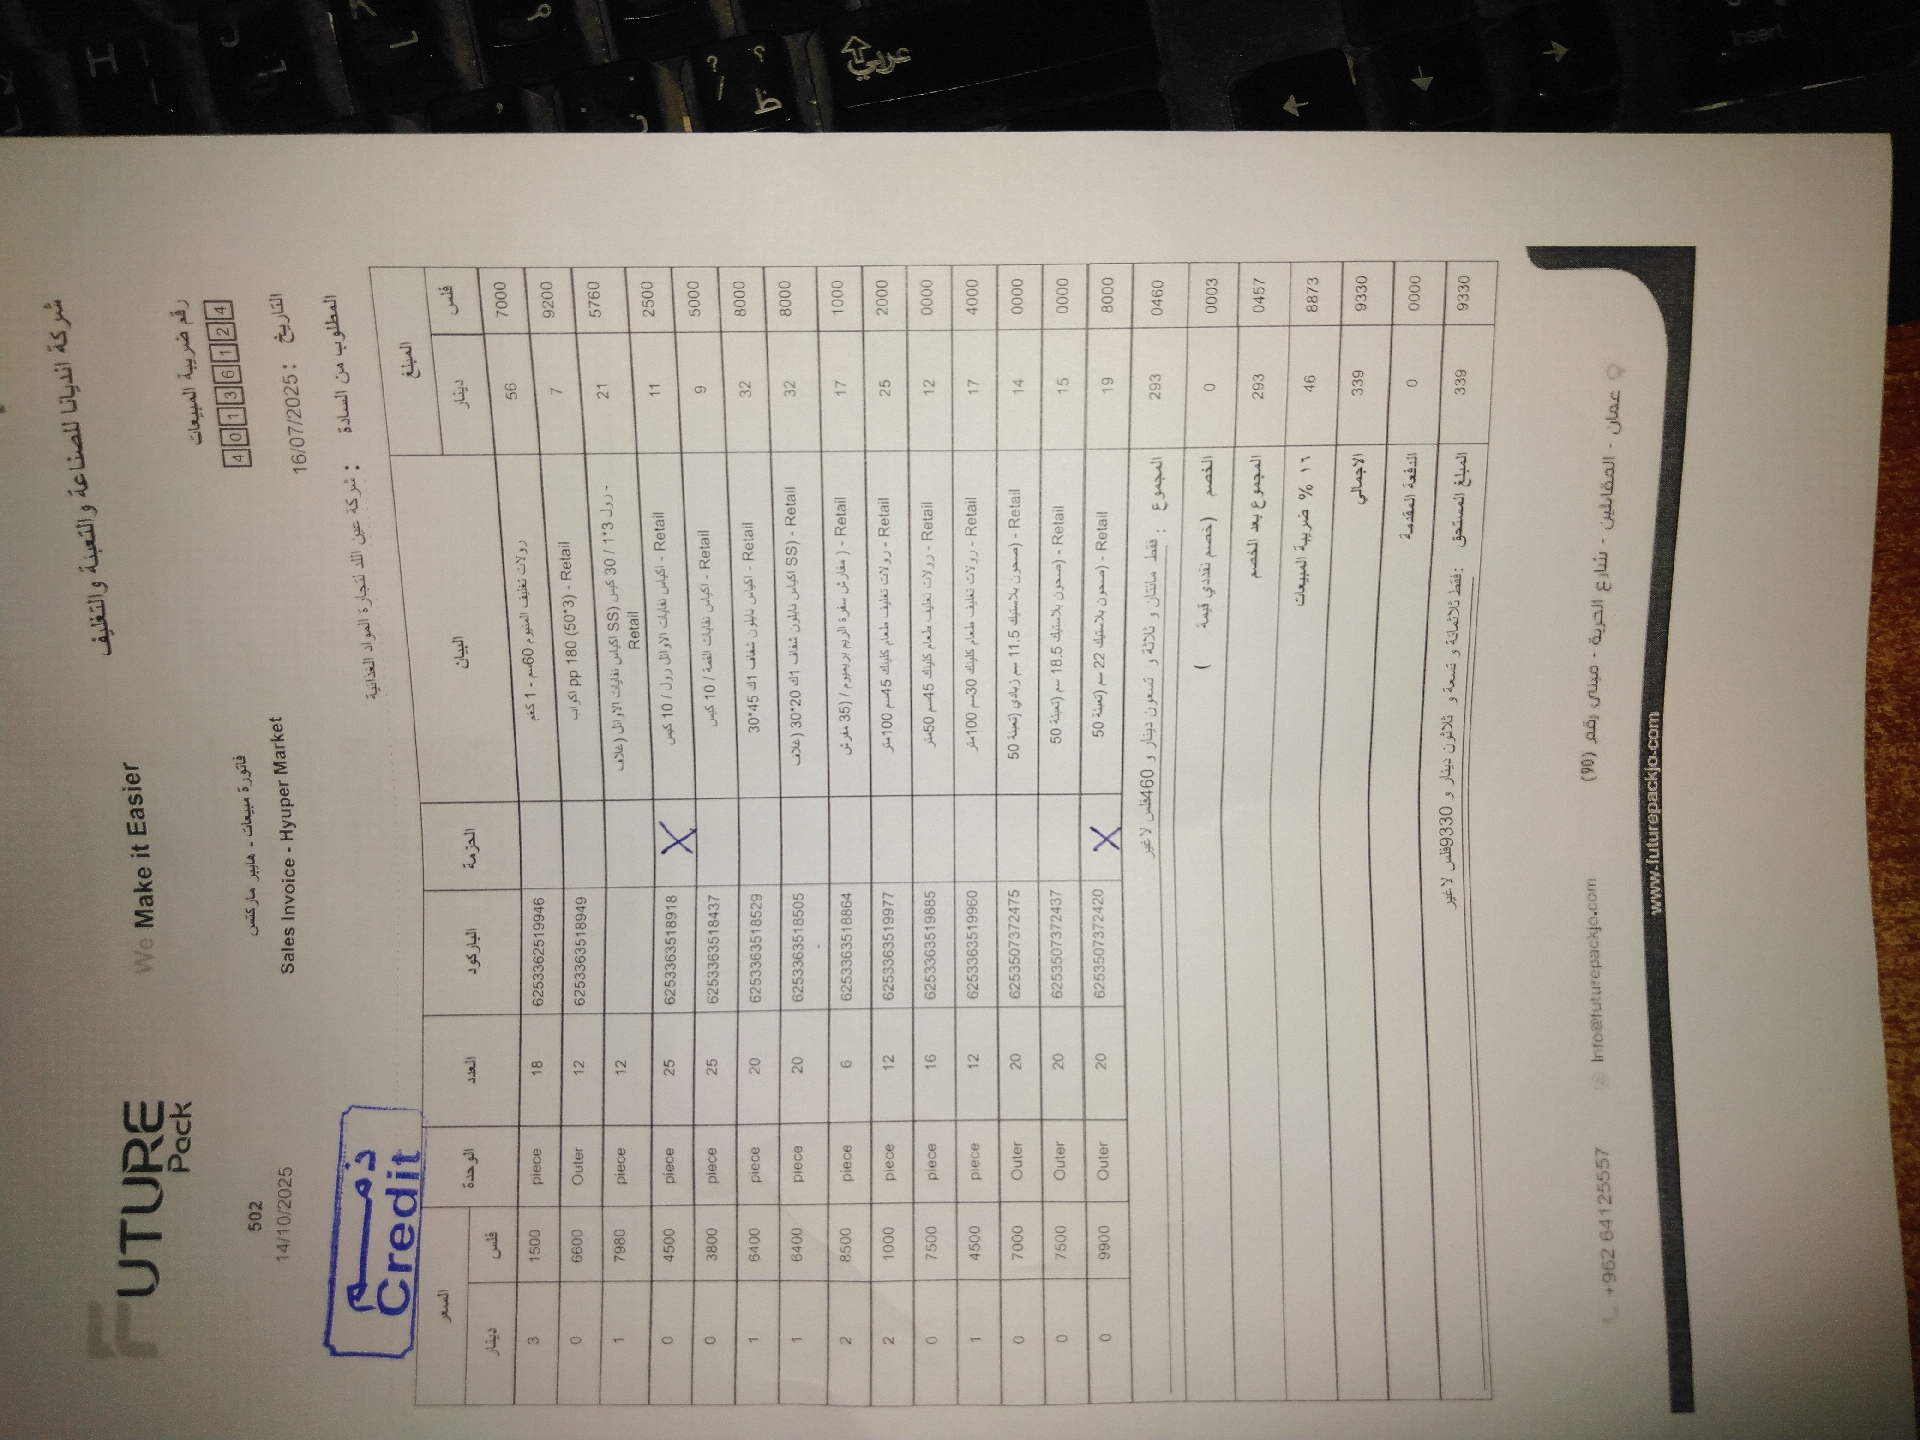 شركة انديانا للصناعة والتعبئة والتغليف
FUTURE
Pack
We Make it Easier
رقم ضريبة المبيعات
4 0 1 3 6 1 2 4
502
فاتورة مبيعات - هايبر ماركتس
14/10/2025
Sales Invoice - Hyuper Market
التاريخ : 16/07/2025
المطلوب من السادة : شركة عين الله لتجارة المواد الغذائية
ذمم
Credit
السعر الوحدة العدد الباركود الحزمة البيان المبلغ
دينار فلس دينار فلس
3 1500 piece 18 6253362519946 رولات تغليف المنيوم 60سم - 1 كغم 56 7000
0 6600 Outer 12 6253363518949 اكواب pp 180 (50*3) - Retail 7 9200
1 7980 piece 12 اكياس نفايات الاوائل (غلاف SS) رول 3*1 / 30 كيس - Retail 21 5760
0 4500 piece 25 6253363518918 X اكياس نفايات الاوائل رول / 10 كيس - Retail 11 2500
0 3800 piece 25 6253363518437 اكياس نفايات القمة / 10 كيس - Retail 9 5000
1 6400 piece 20 6253363518529 اكياس نايلون شفاف 1ك 45*30 - Retail 32 8000
1 6400 piece 20 6253363518505 اكياس نايلون شفاف 1ك 20*30 (غلاف SS) - Retail 32 8000
2 8500 piece 6 6253363518864 مفارش سفرة الريم بريميوم / (35 مفرش) - Retail 17 1000
2 1000 piece 12 6253363519977 رولات تغليف طعام كلينك 45سم 100متر - Retail 25 2000
0 7500 piece 16 6253363519885 رولات تغليف طعام كلينك 45سم 50متر - Retail 12 0000
1 4500 piece 12 6253363519960 رولات تغليف طعام كلينك 30سم 100متر - Retail 17 4000
0 7000 Outer 20 6253507372475 صحون بلاستيك 11.5 سم زبادي (تعبئة 50) - Retail 14 0000
0 7500 Outer 20 6253507372437 صحون بلاستيك 18.5 سم (تعبئة 50) - Retail 15 0000
0 9900 Outer 20 6253507372420 X صحون بلاستيك 22 سم (تعبئة 50) - Retail 19 8000
المجموع : فقط مائتان و ثلاثة و تسعون دينار و 460فلس لاغير 293 0460
الخصم (خصم نقدي قيمة ) 0 0003
المجموع بعد الخصم 293 0457
١٦ % ضريبة المبيعات 46 8873
الاجمالي 339 9330
الدفعة المقدمة 0 0000
المبلغ المستحق :فقط ثلاثمائة و تسعة و ثلاثون دينار و 9330فلس لاغير 339 9330
+962 64125557
Info@futurepackjo.com
عمان - المقابلين - شارع الحرية - مبنى رقم (90)
www.futurepackjo.com
عربي
Insert